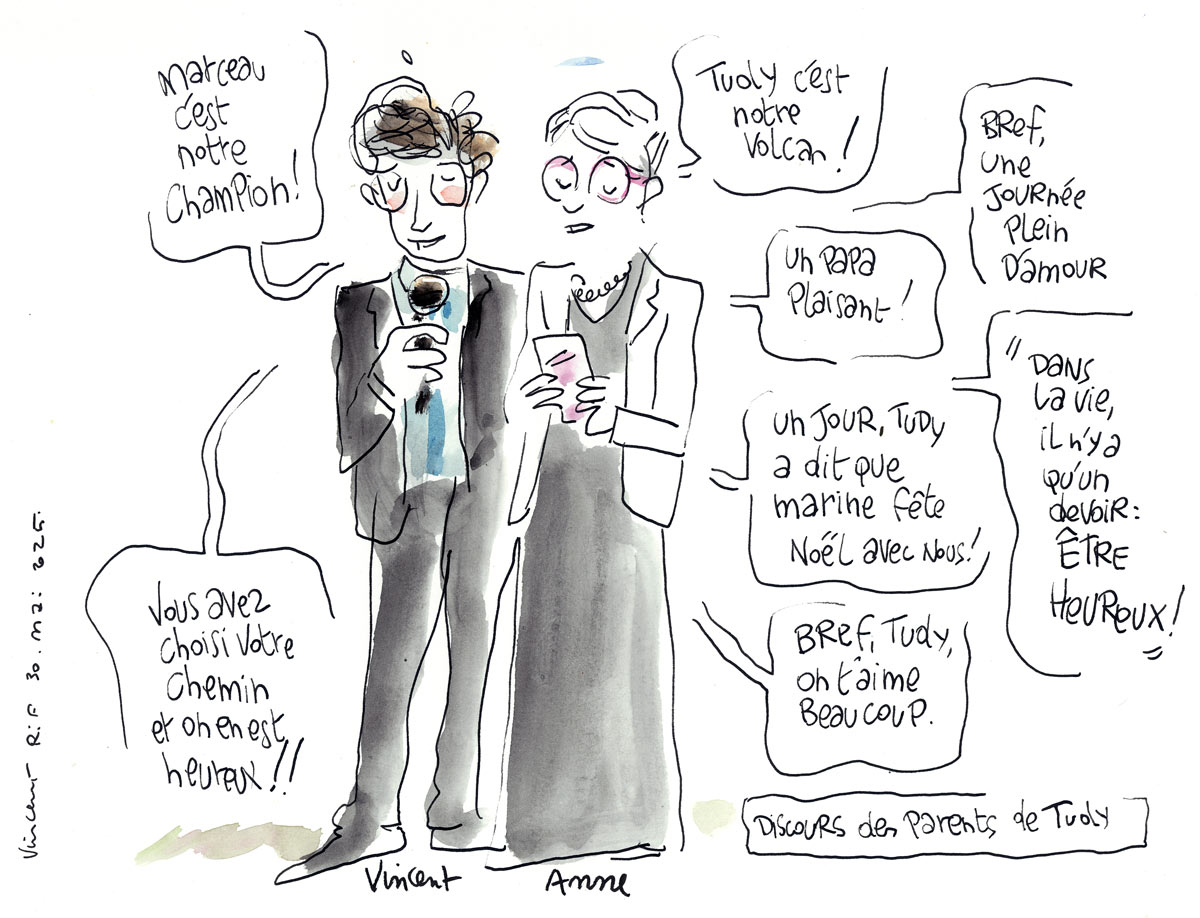 Marceau
c'est
notre
Champion!
Tudy c'est
notre
Volcan!
Bref,
une
Journée
plein
d'amour
un papa
plaisant!
"Dans
la vie,
il n'y a
qu'un
devoir:
ÊTRE
HEUREUX!"
un jour, Tudy
a dit que
marine fête
Noël avec nous!
Bref, Tudy,
on t'aime
Beaucoup.
Vous avez
choisi votre
chemin
et on en est
heureux!!
Discours des parents de Tudy
Vincent
Anne
Vincent Rif 30.